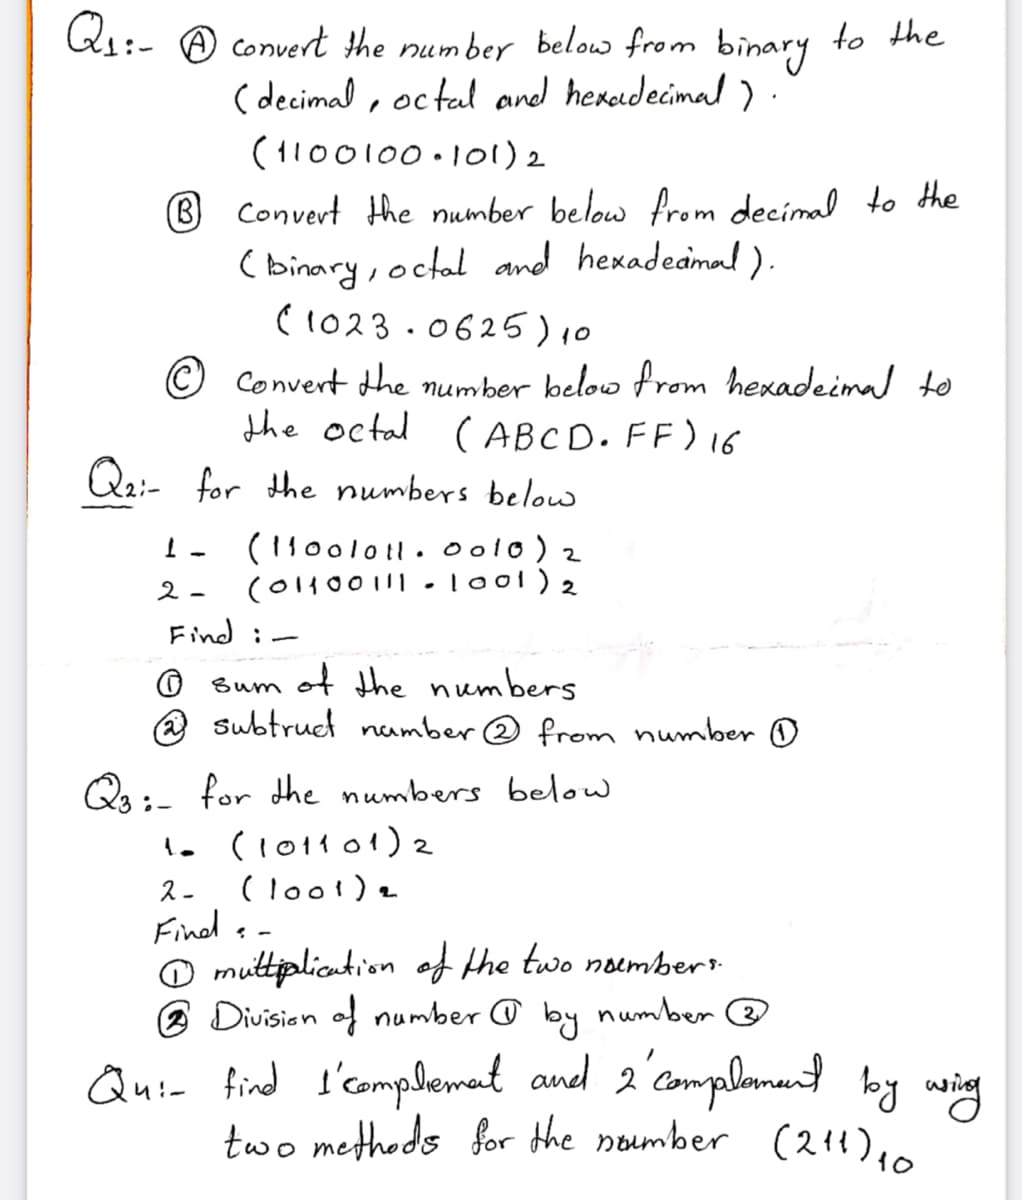 Q1:- Ⓐ convert the number below from binary to the
(decimal, octal and hexadecimal).
(1100100.101)2
Ⓑ Convert the number below from decimal to the
(binary, octal and hexadecimal).
(1023.0625)10
Ⓒ Convert the number below from hexadeimal to
the octal (ABCD.FF)16
Q2:- for the numbers below
1- (11001011.0010)2
2- (01100111.1001)2
Find :-
① sum of the numbers
② subtruct number ② from number ①
Q3:- for the numbers below
1- (101101)2
2- (1001)2
Find :-
① multiplication of the two numbers.
② Division of number ① by number ②
Q4:- find 1'complement and 2'complement by using
two methods for the number (211)10